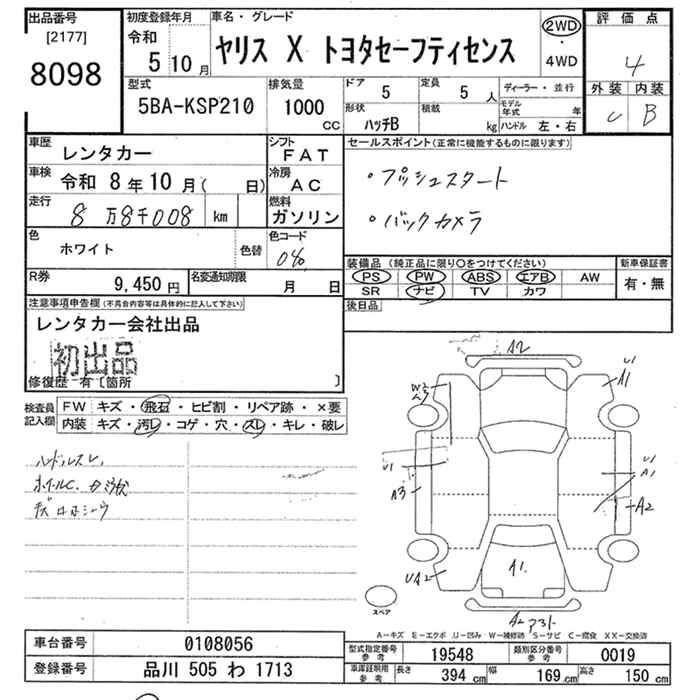 出品番号
[2177]
8098
初度登録年月
令和
5 10月
車名・グレード
ヤリス X トヨタセーフティセンス
2WD
・
4WD
評価点
4
外装 内装
C B
型式
5BA-KSP210
排気量
1000
CC
ドア
5
定員
5 人
形状
ハッチB
積載
kg
ディーラー・並行
モデル年式 年
ハンドル 左・右
車歴
レンタカー
シフト
FAT
車検
令和 8年10月( 日)
冷房
AC
走行
8万8千008 km
燃料
ガソリン
色
ホワイト
色替
色コード
040
R券
9,450円
名変通知期限
月 日
セールスポイント(正常に機能するものに限ります)
・プッシュスタート
・バックカメラ
装備品(純正品に限り○をつけてください)
PS PW ABS エアB AW
SR ナビ TV カワ
新車保証書
有・無
後日品
注意事項申告欄(不具合内容等は具体的に記入して下さい)
レンタカー会社出品
初出品
修復歴 有〔箇所 〕
検査員
記入欄
FW キズ・飛石・ヒビ割・リペア跡・×要
内装 キズ・汚レ・コゲ・穴・スレ・キレ・破レ
ハンドルスレ
A2
U1
A1
W2
U1
A3
U1
A1
A2
UA2
A1.
A2
スペア
A-キズ E-エクボ U-凹み W-補修跡 S-サビ C-腐食 XX-交換済
車台番号
0108056
登録番号
品川 505 わ 1713
型式指定番号
参考
19548
類別区分番号
参考
0019
車庫証明用
参考
長さ 394 cm
幅 169 cm
高さ 150 cm